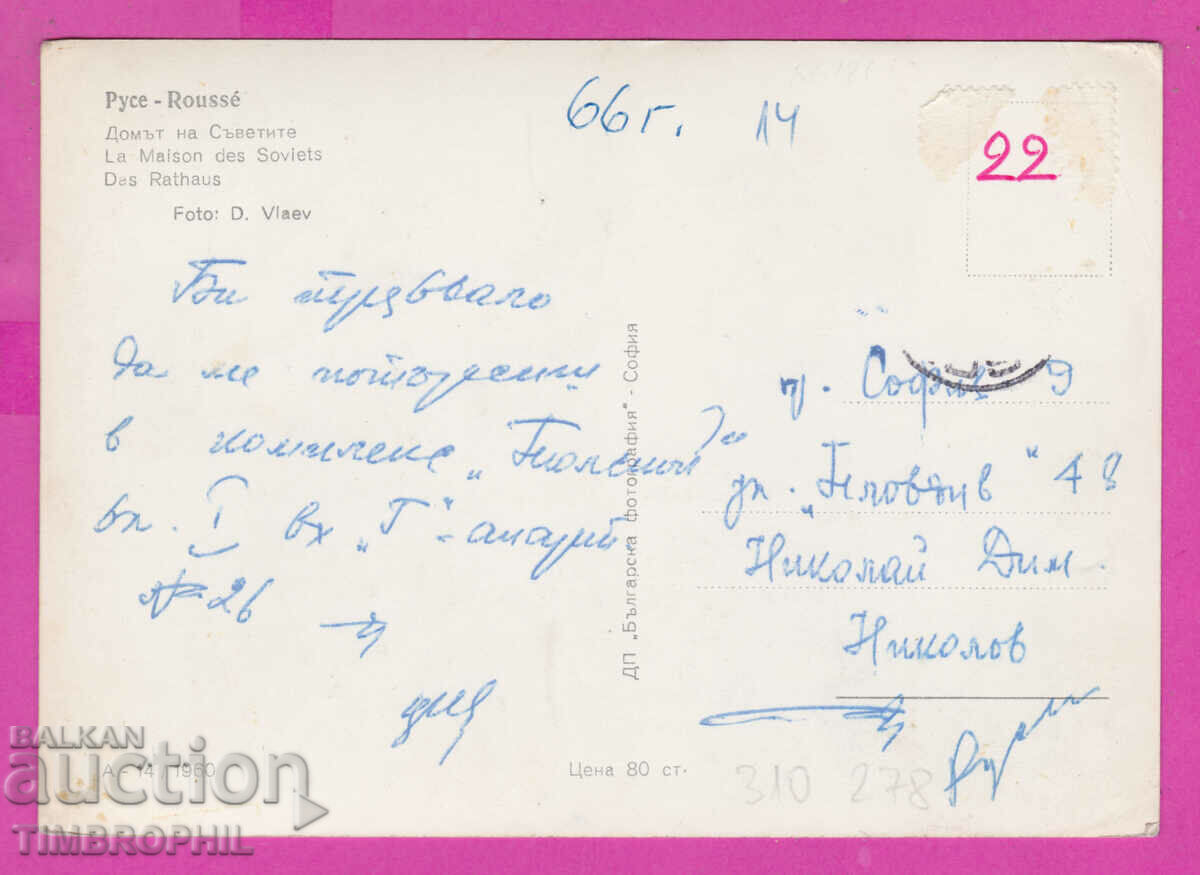 Русе - Roussé
Домът на Съветите
La Maison des Soviets
Das Rathaus
Foto: D. Vlaev
66 г. 14
22
Би трябвало
да ме потърсиш
в комплекс „
бл. I вх „Г“ -
№ 26
ДП „Българска фотография“ - София
гр. София 9
ул. „Пловдив“ 48
Николай Дим.
Николов
А - 14 / 1960
Цена 80 ст.
310 278
BALKAN
auction
TIMBROPHIL